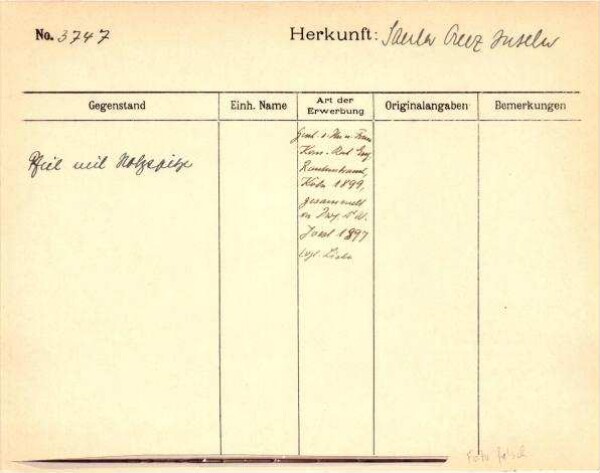 No. 3747
Herkunft: Santa Cruz Inseln
Gegenstand
Einh. Name
Art der Erwerbung
Originalangaben
Bemerkungen
Pfeil mit Holzspitze
Gesch. v. Hrn u. Frau
Kom. Rat Eug.
Rautenstrauch,
Köln 1899,
gesammelt
W.
Joest 1897
vgl. Liste
Foto